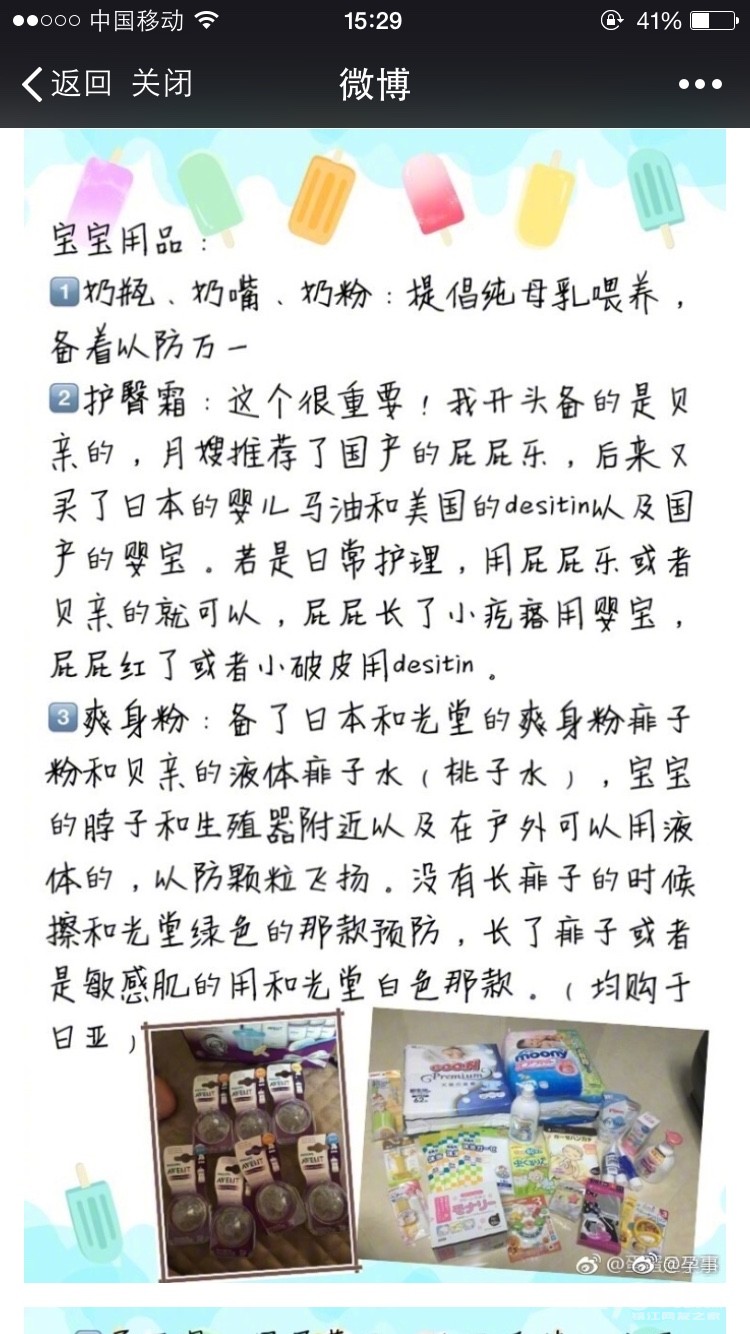 中国移动 15:29 41%
返回 关闭 微博
宝宝用品：
1奶瓶、奶嘴、奶粉：提倡纯母乳喂养，
备着以防万一
2护臀霜：这个很重要！我开头备的是贝
亲的，月嫂推荐了国产的屁屁乐，后来又
买了日本的婴儿马油和美国的desitin以及国
产的婴宝。若是日常护理，用屁屁乐或者
贝亲的就可以，屁屁长了小疙瘩用婴宝，
屁屁红了或者小破皮用desitin。
3爽身粉：备了日本和光堂的爽身粉痱子
粉和贝亲的液体痱子水（桃子水），宝宝
的脖子和生殖器附近以及在户外可以用液
体的，以防颗粒飞扬。没有长痱子的时候
擦和光堂绿色的那款预防，长了痱子或者
是敏感肌的用和光堂白色那款。（均购于
日亚）
AVENT
AVENT
AVENT
AVENT
AVENT
AVENT
AVENT
GOO.N
Premium
moony
モナリー
@孕事